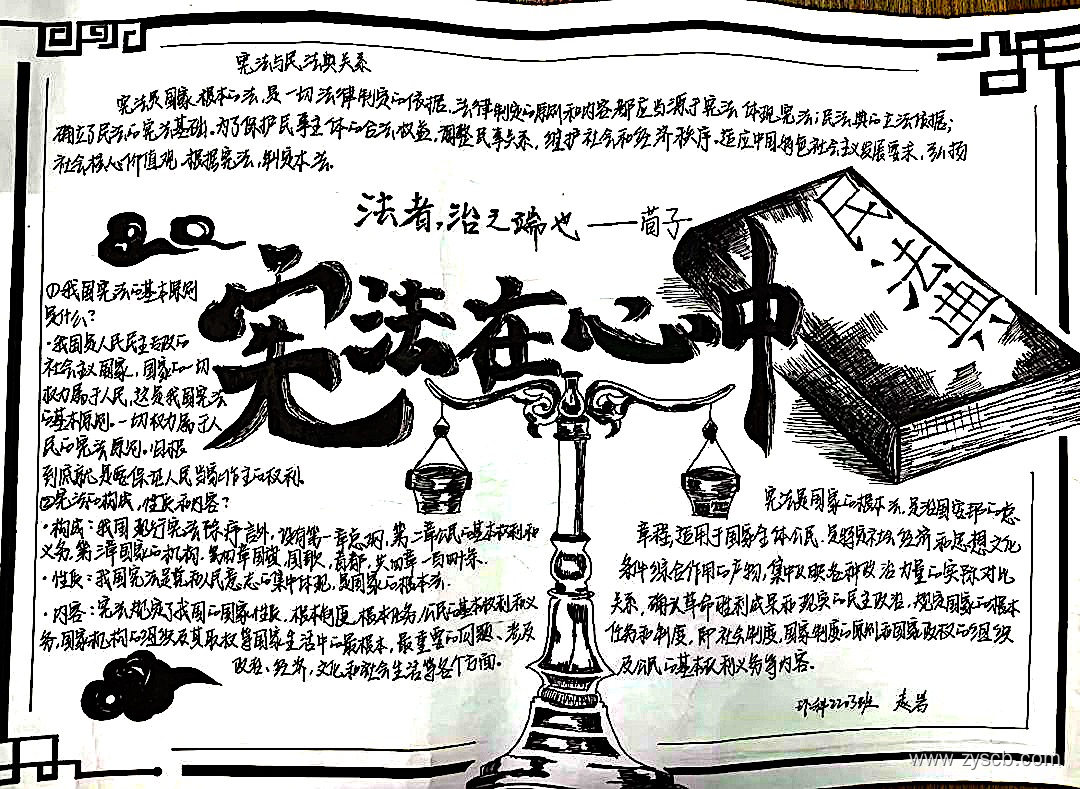 宪法与民法典关系
宪法是国家根本的法,是一切法律制定的依据,法律制定的原则和内容都应当源于宪法,体现宪法;民法典的立法依据;
确立了民法的宪法基础。为了保护民事主体的合法权益,调整民事关系,维护社会和经济秩序,适应中国特色社会主义发展要求,弘扬
社会核心价值观,根据宪法,制定本法。
法者,治之端也——荀子
民法典
宪法在心中
①我国宪法的基本原则
是什么?
·我国是人民民主专政的
社会主义国家,国家的一切
权力属于人民,这是我国宪法
的基本原则。一切权力属于人
民的宪法原则。归根
到底就是要保证人民当家作主的权利。
②宪法的构成,性质和内容?
·构成:我国现行宪法除序言外,设有第一章总纲,第二章公民的基本权利和
义务,第三章国家的机构,第四章国旗,国歌,首都,共四章一百四十条。
·性质:我国宪法是党和人民意志的集中体现,是国家的根本法。
·内容:宪法规定了我国的国家性质,根本制度,根本任务,公民的基本权利和义
务,国家机构的组织及其职权等国家生活中的最根本,最重要的问题、涉及
政治、经济,文化和社会生活等各个方面。
宪法是国家的根本法,是治国安邦的总
章程,适用于国家全体公民,是特定社会经济和思想文化
条件综合作用的产物,集中反映各种政治力量的实际对比
关系,确认革命胜利成果和现实的民主政治,规定国家的根本
任务和制度,即社会制度,国家制度的原则和国家政权的组织
及公民的基本权利义务等内容。
环科2203班
www.zyscb.com